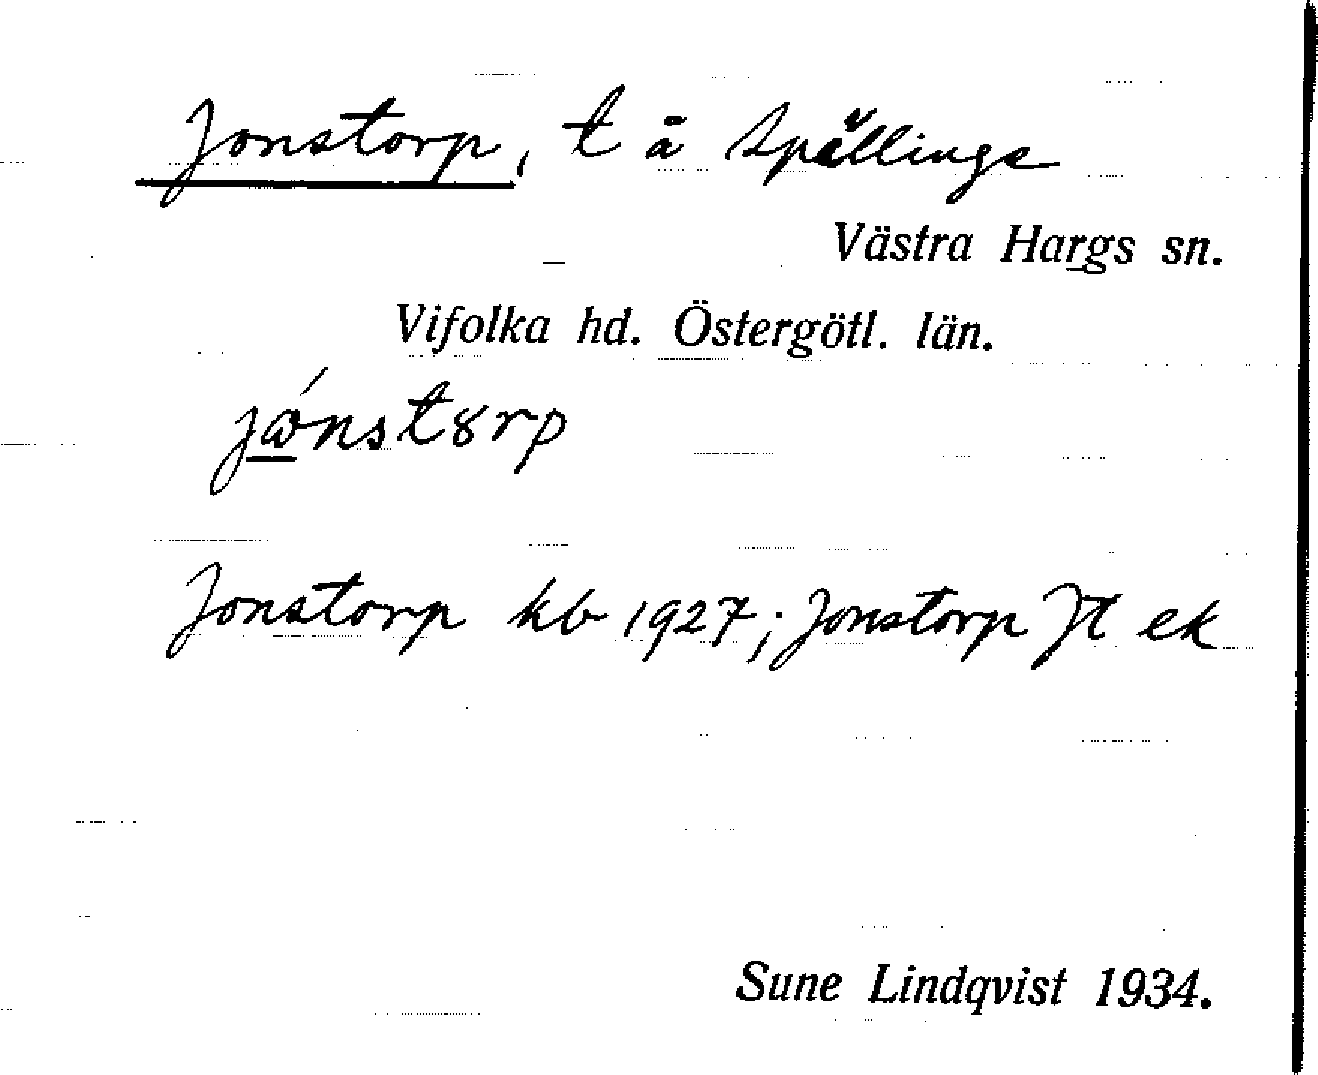 Jonstorp, t å Spällinge
Västra Hargs sn.
Vifolka hd. Östergötl. län.
Jonstorp kb 1927; Jonstorp Jt ek
Sune Lindqvist 1934.